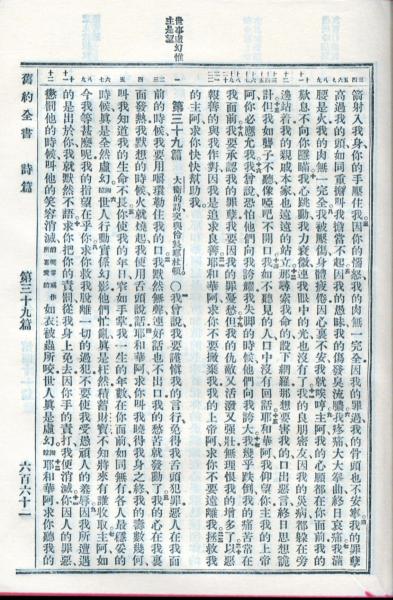 箭射入我身你的手壓住我因你的惱怒我的肉無一完全因我的罪過我的骨頭也不安寧我的罪孽
高過我的頭如同重擔叫我擔當不起因我的愚昧我的傷發臭流膿我疼痛大大拳曲終日哀痛我滿
腰是火我的肉無一完全我被壓傷身體疲倦因心裏不安我就唉哼主阿我的心願都在你面前我的
歎息不向你隱瞞我心跳動我力衰微連我眼中的光也沒有了我的良朋密友因我的災病都躲在旁
邊站着我的親戚本家也遠遠的站立那尋索我命的設下網羅那想要害我的口出惡言終日思想詭
計但我如聾子不聽像啞吧不開口我如不聽見的人口中沒有回話耶和華阿我仰望你主我的上帝
阿你必應允我我曾說恐怕他們向我誇耀我失脚的時候他們向我誇大我幾乎跌倒我的痛苦常在
我面前我要承認我的罪孽我要因我的罪憂愁但我的仇敵又活潑又強壯無理恨我的增多了以惡
報善的與我作對因我是追求良善耶和華阿求你不要撇棄我我的上帝阿求你不要遠離我拯救我
的主阿求你快快幫助我
第三十九篇 大衛的詩交與伶長耶杜頓 ○我曾說我要謹慎我的言行免得我舌頭犯罪惡人在我面
前的時候我要用嚼環勒住我的口我默然無聲連好話也不出口我的愁苦就發動了我的心在我裏
面發熱我默想的時候火就燒起我便用舌頭說話耶和華阿求你叫我曉得我身之終我的壽數幾何
叫我知道我的生命不長你使我的年日窄如手掌我一生的年數在你面前如同無有各人最穩妥的
時候眞是全然虛幻 世人行動實係幻影他們忙亂眞是枉然積蓄財寶不知將來有誰收取主阿如
今我等甚麼呢我的指望在乎你求你救我脫離一切的過犯不要使我受愚頑人的羞辱因我所遭遇
的是出於你我就默然不語求你把你的責罰從我身上免去因你手的責打我便消滅你因人的罪惡
懲罰他的時候叫他的笑容消滅 如衣被蟲所咬世人眞是虛幻 耶和華阿求你聽我的
世事虛幻惟
主是望
舊約全書 詩篇 第三十九篇 六百六十一